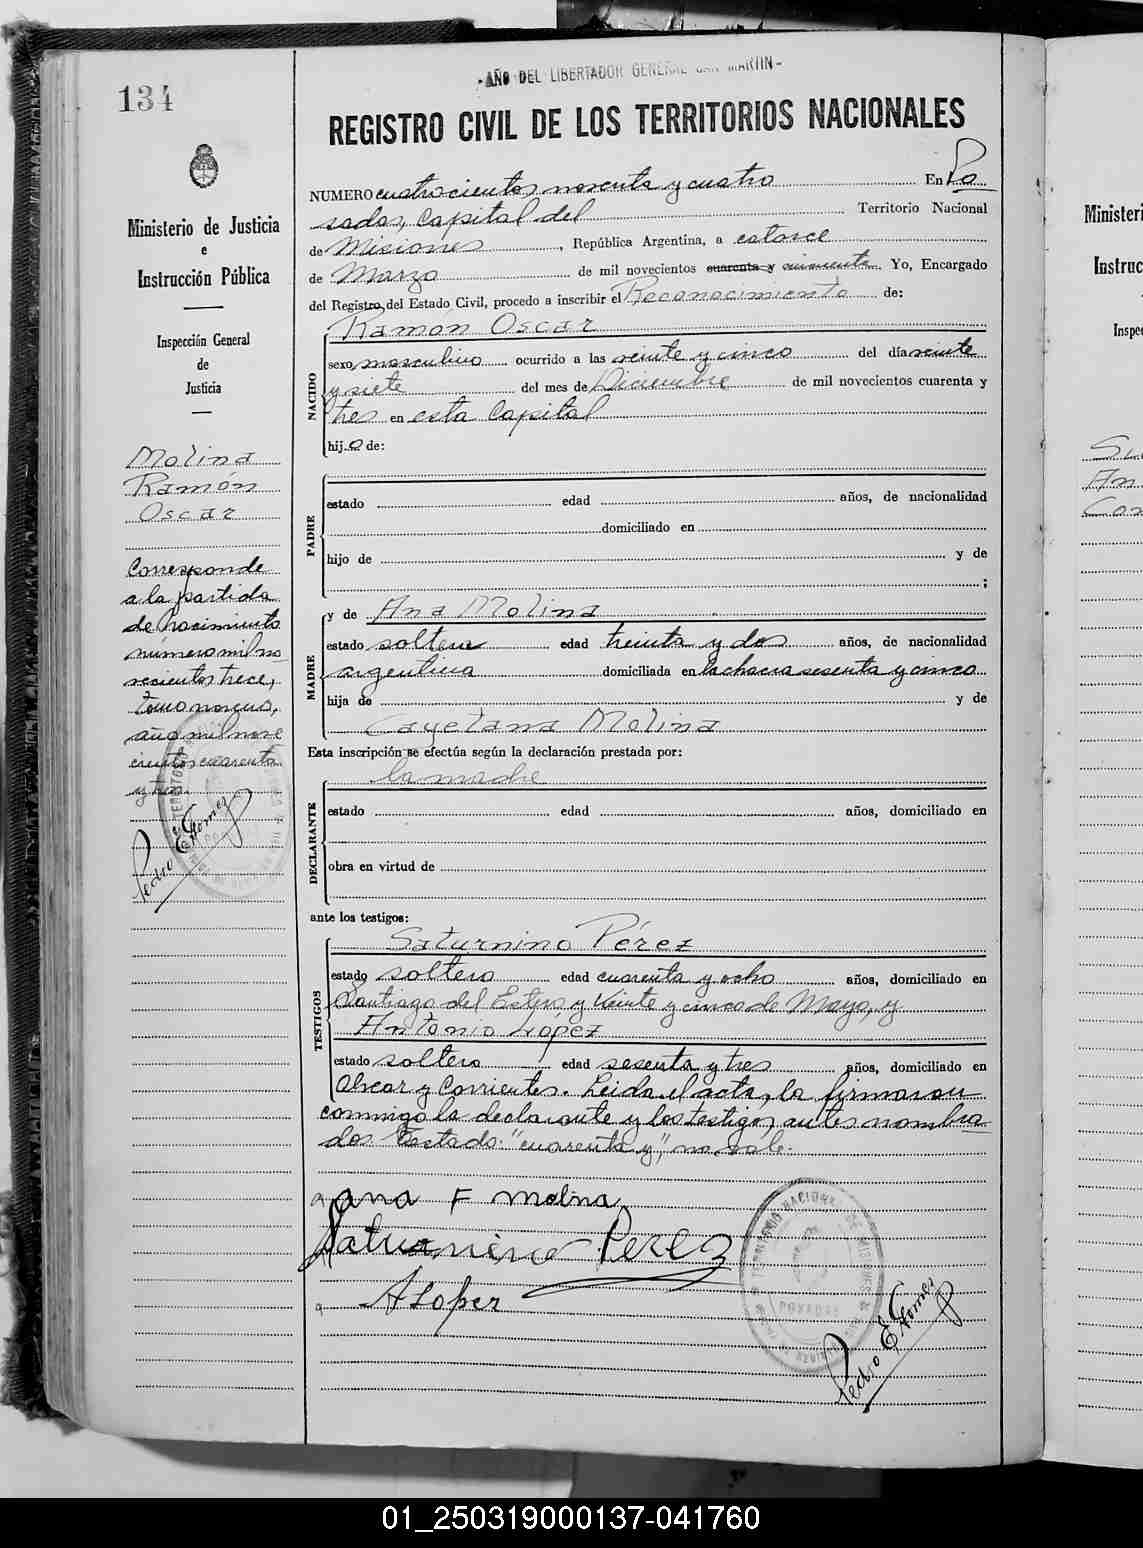 -AÑO DEL LIBERTADOR GENERAL SAN MARTIN-
134
REGISTRO CIVIL DE LOS TERRITORIOS NACIONALES
Ministerio de Justicia
e
Instrucción Pública
Inspección General
de
Justicia
Molina
Ramón
Oscar
Corresponde
a la partida
de nacimiento
numero mil no
vecientos trece,
tomo noveno,
año mil nove
cientos cuarenta
y tres.
Pedro E. Gomez
NUMERO cuatrocientos noventa y cuatro En Po
sadas, Capital del Territorio Nacional
de Misiones, República Argentina, a catorce
de Marzo de mil novecientos cuarenta y cincuenta Yo, Encargado
del Registro del Estado Civil, procedo a inscribir el Reconocimiento de:
Ramón Oscar
NACIDO
sexo masculino ocurrido a las veinte y cinco del día veinte
y siete del mes de Diciembre de mil novecientos cuarenta y
tres en esta Capital
hij o de:
PADRE
estado edad años, de nacionalidad
domiciliado en
hijo de y de
;
MADRE
y de Ana Molina
estado soltera edad treinta y dos años, de nacionalidad
argentina domiciliada en la chacra sesenta y cinco
hija de y de
Cayetana Molina
Esta inscripción se efectúa según la declaración prestada por:
la madre
DECLARANTE
estado edad años, domiciliado en
obra en virtud de
ante los testigos:
TESTIGOS
Saturnino Pérez
estado soltero edad cuarenta y ocho años, domiciliado en
Santiago del Estero y Veinte y cinco de Mayo, y
Antonio López
estado soltero edad sesenta y tres años, domiciliado en
Alvear y Corrientes. Leida el acta, la firmaron
conmigo la declarante y los testigos antes nombra
dos. Testado: "cuarenta y", no vale.
ana F molina
Saturnino Perez
A Lopez
TERRITORIO NACIONAL DE MISIONES
POSADAS
Pedro E. Gomez
Ministeri
Instruc
Inspe
01_250319000137-041760